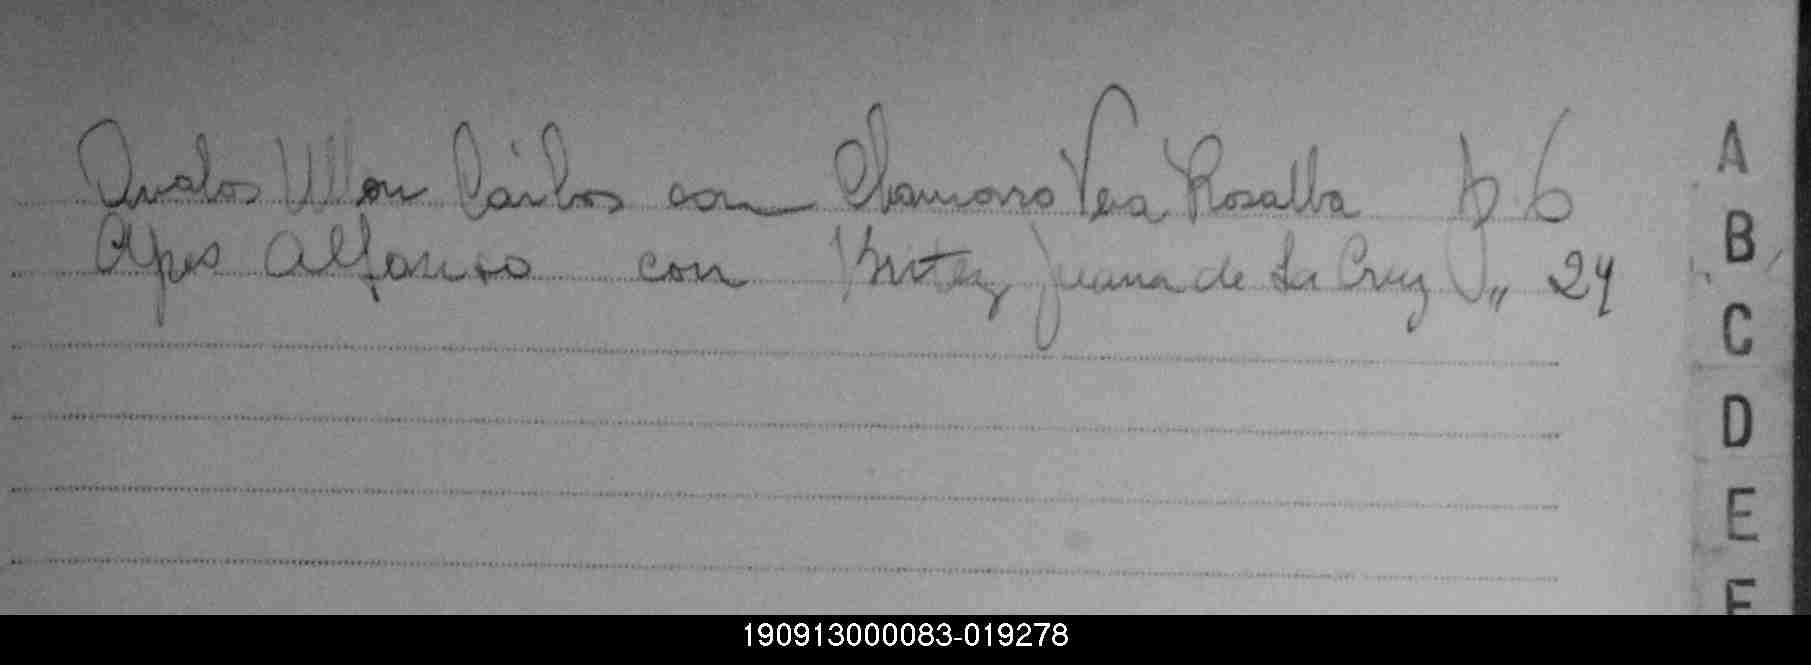 Avalos Ullon Cárlos con Chamorro Vera Rosalba p. 6
Apes Alfonso con Britez Juana de La Cruz " 24
A
B
C
D
E
F
190913000083-019278